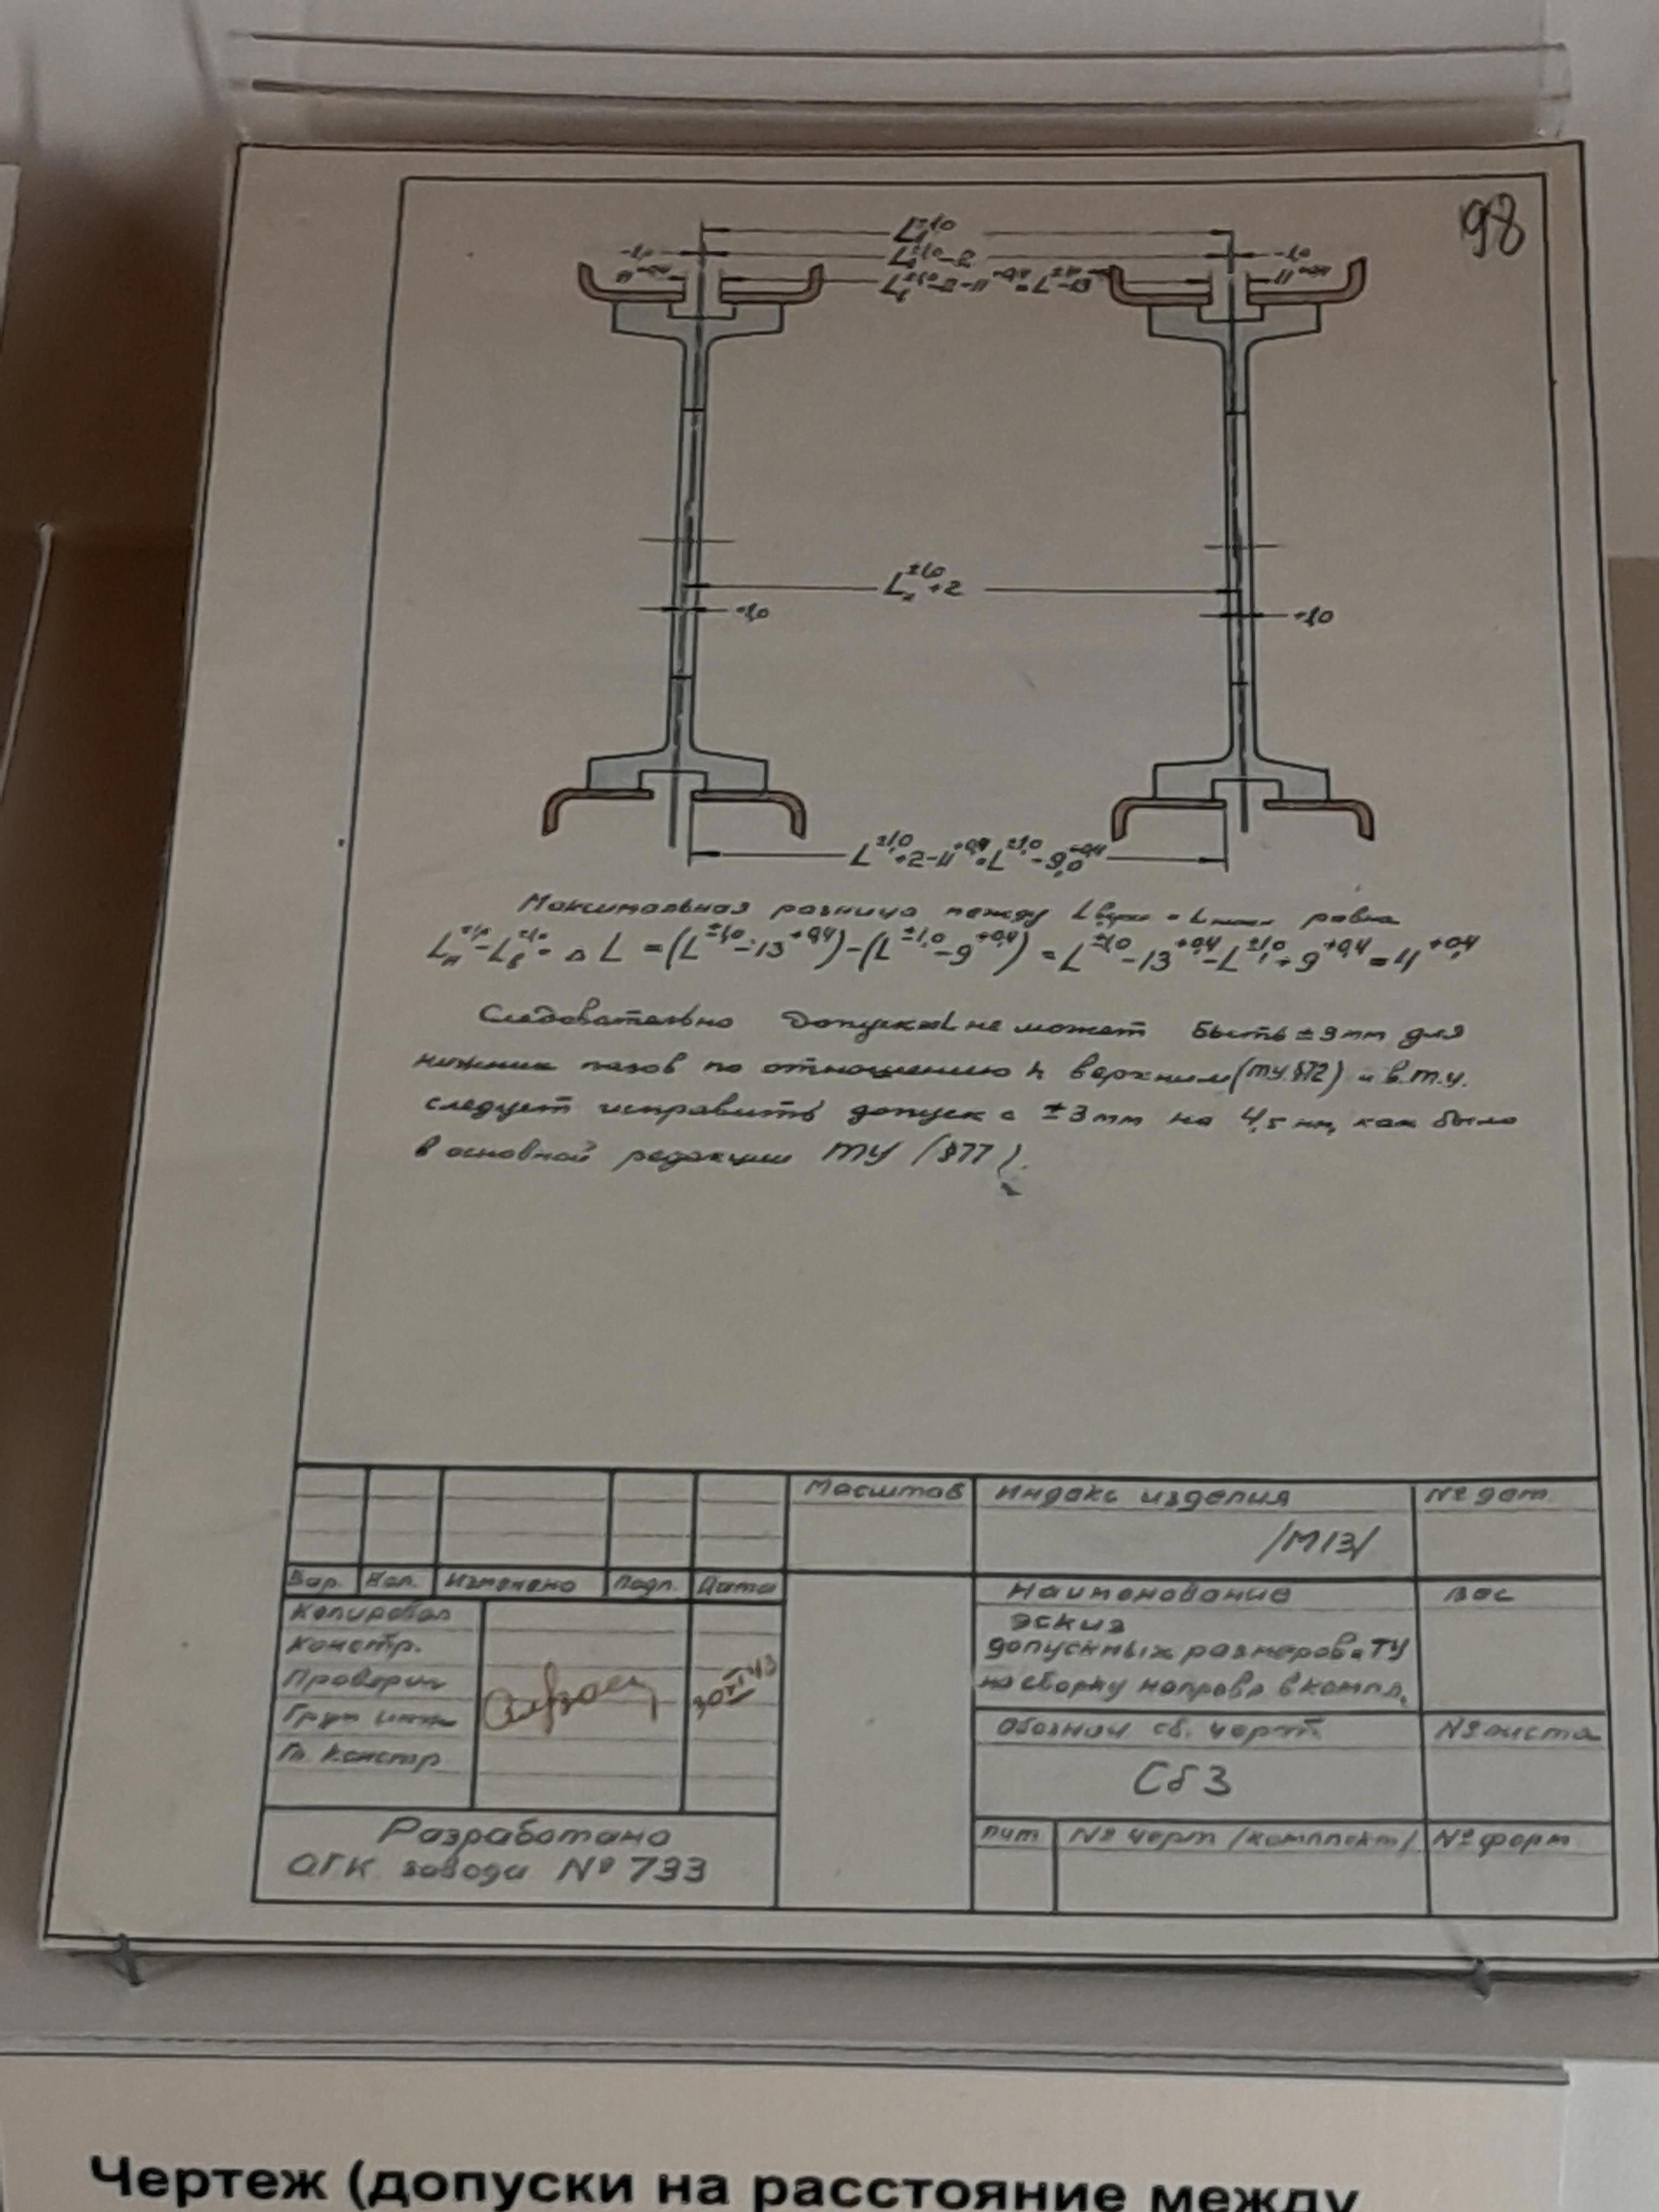 98
L₁^±1,0
-1,0
L₁^±1,0-2
-1,0
11^+0,4
11^+0,4
L^±1,0+2
-1,0
+1,0
L^±1,0+2-11^+0,4=L^±1,0-9,0^+0,4
Максимальная разница между L верхн и L нижн равна
Lн^±1,0-Lв^±1,0=ΔL=(L^±1,0-13^+0,4)-(L^±1,0-9^+0,4)=L^±1,0-13^+0,4-L^±1,0+9^+0,4=4^+0,4
Следовательно Допуск L не может Быть ±3мм для
нижних пазов по отношению к верхним (ТУ §72) и в т.у.
следует исправить допуск с ±3мм на 4,5мм, как было
в основной редакции ТУ (§77).
Масштаб Индекс изделия № дет
/М13/
Вар. Кол. Изменено Подп. Дата
Наименование Вес
Копировал
эскиз
Констр.
допускных размеров и ТУ
Проверил
30 XI 43
на сборку направл в компл.
Груп инж
Обознач св. черт. № листа
Гл. Констр
Сб 3
Разработано
ОГК завода № 733
Лит № черт /комплект/ № форм
Чертеж (допуски на расстояние между